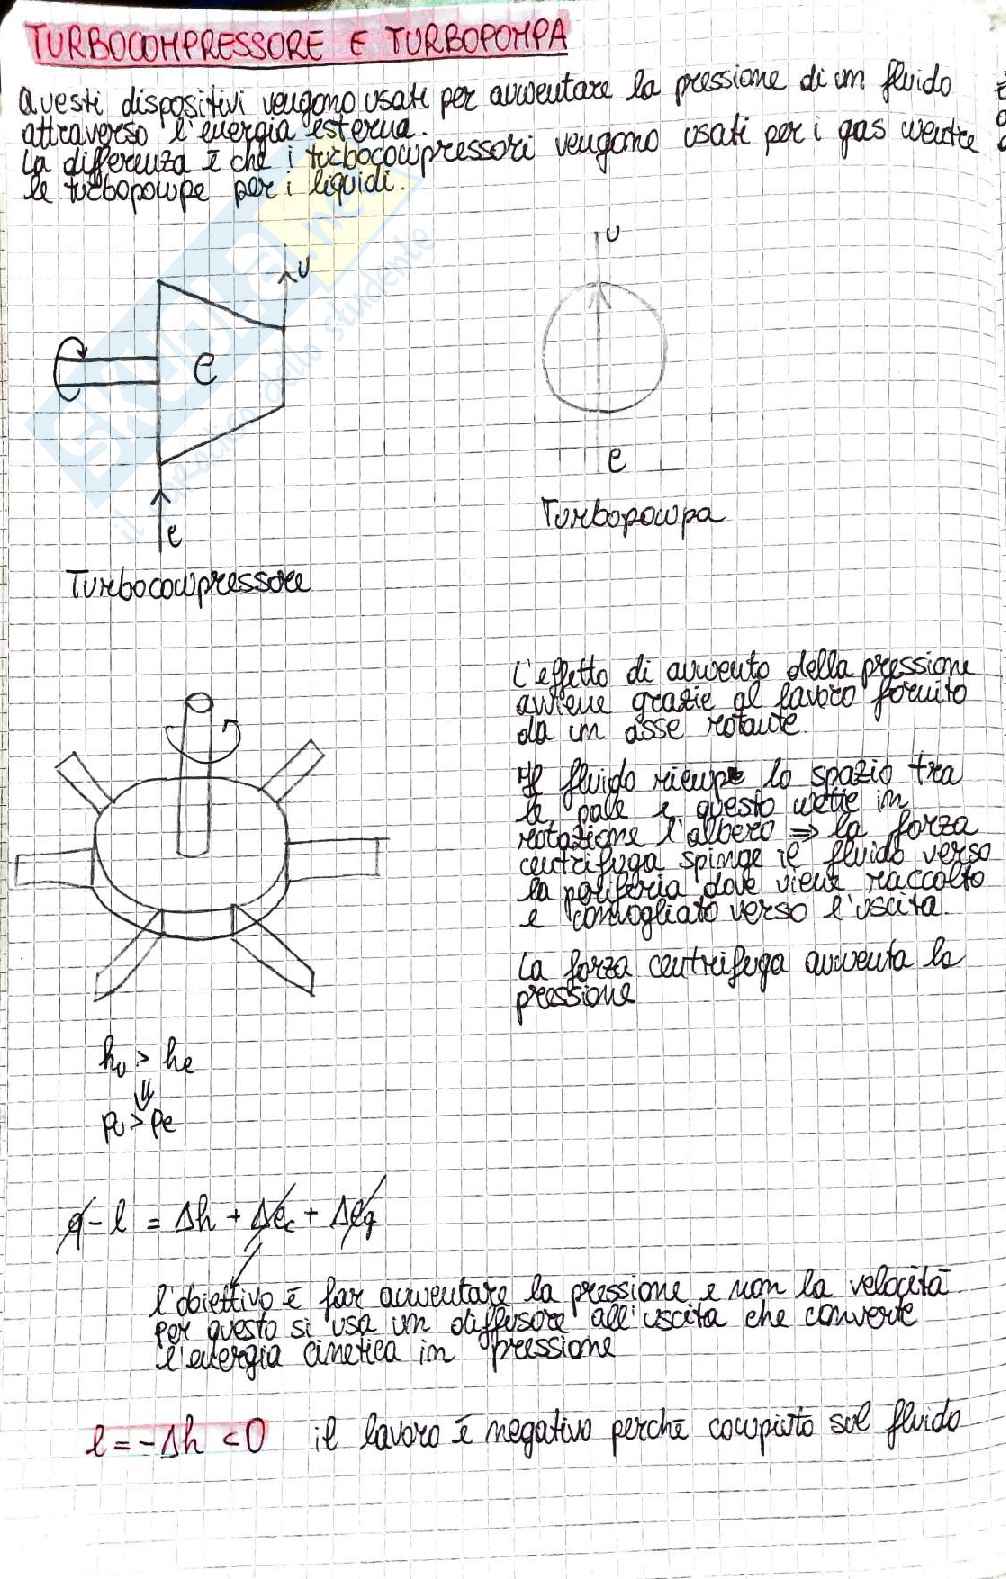 TURBOCOMPRESSORE E TURBOPOMPA
Questi dispositivi vengono usati per aumentare la pressione di un fluido
attraverso l'energia esterna.
La differenza è che i turbocompressori vengono usati per i gas mentre
le turbopompe per i liquidi.
U
e
e
Turbocompressore
U
e
Turbopompa
L'effetto di aumento della pressione
avviene grazie al lavoro fornito
da un asse rotante.
Il fluido riempe lo spazio tra
le pale e questo mette in
rotazione l'albero ⇒ la forza
centrifuga spinge il fluido verso
la periferia dove viene raccolto
e convogliato verso l'uscita.
La forza centrifuga aumenta la
pressione
hu > he
⇓
pu > pe
q - l = Δh + Δec + Δeg
l'obiettivo è far aumentare la pressione e non la velocità
per questo si usa un diffusore all'uscita che converte
l'energia cinetica in pressione
l = -Δh < 0 il lavoro è negativo perchè compiuto sul fluido
skuola.net
il paradiso dello studente